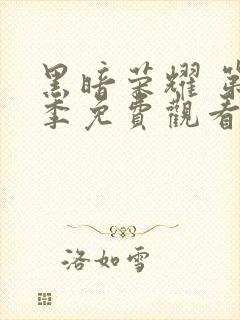 黑暗荣耀 第
季免費觀看
洛如雪